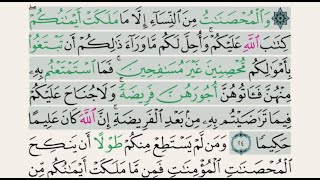 وَٱلْمُحْصَنَٰتُ مِنَ ٱلنِّسَآءِ إِلَّا مَا مَلَكَتْ أَيْمَٰنُكُمْ
كِتَٰبَ ٱللَّهِ عَلَيْكُمْ وَأُحِلَّ لَكُم مَّا وَرَآءَ ذَٰلِكُمْ أَن تَبْتَغُوا۟
بِأَمْوَٰلِكُم مُّحْصِنِينَ غَيْرَ مُسَٰفِحِينَ فَمَا ٱسْتَمْتَعْتُم بِهِۦ
مِنْهُنَّ فَـَٔاتُوهُنَّ أُجُورَهُنَّ فَرِيضَةً وَلَا جُنَاحَ عَلَيْكُمْ
فِيمَا تَرَٰضَيْتُم بِهِۦ مِنۢ بَعْدِ ٱلْفَرِيضَةِ إِنَّ ٱللَّهَ كَانَ عَلِيمًا
حَكِيمًا ٢٤ وَمَن لَّمْ يَسْتَطِعْ مِنكُمْ طَوْلًا أَن يَنكِحَ
ٱلْمُحْصَنَٰتِ ٱلْمُؤْمِنَٰتِ فَمِن مَّا مَلَكَتْ أَيْمَٰنُكُم مِّن